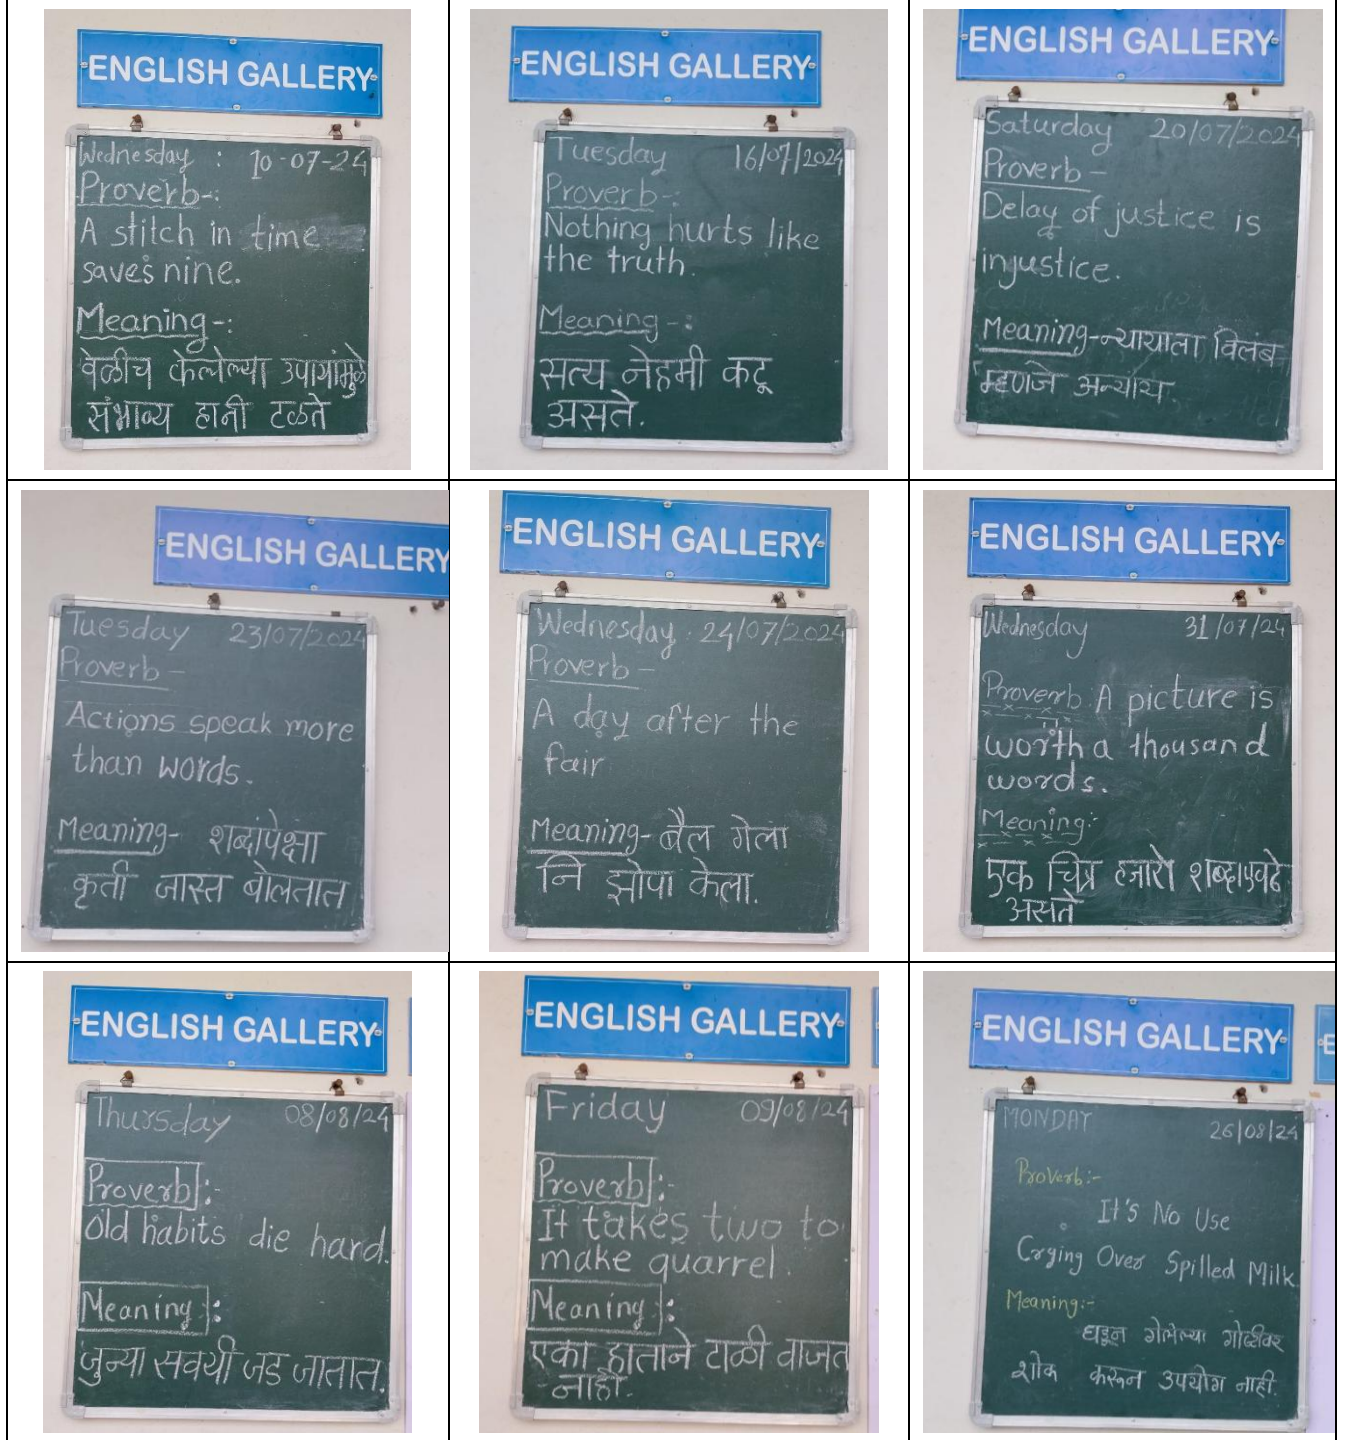 ENGLISH GALLERY
Wednesday : 10-07-24
Proverb-:
A stitch in time
saves nine.
Meaning-:
वेळीच केलेल्या उपायांमुळे
संभाव्य हानी टळते
ENGLISH GALLERY
Tuesday 16/07/2024
Proverb-:
Nothing hurts like
the truth.
Meaning-:
सत्य नेहमी कटू
असते.
ENGLISH GALLERY
Saturday 20/07/2024
Proverb-
Delay of justice is
injustice.
Meaning-न्यायाला विलंब
म्हणजे अन्याय.
ENGLISH GALLERY
Tuesday 23/07/2024
Proverb-
Actions speak more
than words.
Meaning- शब्दांपेक्षा
कृती जास्त बोलतात
ENGLISH GALLERY
Wednesday : 24/07/2024
Proverb-
A day after the
fair
Meaning- बैल गेला
नि झोपा केला.
ENGLISH GALLERY
Wednesday 31/07/24
Proverb: A picture is
worth a thousand
words.
Meaning:-
एक चित्र हजारो शब्दांएवढे
असते
ENGLISH GALLERY
Thursday 08/08/24
Proverb:-
Old habits die hard.
Meaning:
जुन्या सवयी जड जातात.
ENGLISH GALLERY
Friday 09/08/24
Proverb:-
It takes two to
make quarrel.
Meaning:
एका हाताने टाळी वाजत
नाही.
ENGLISH GALLERY
MONDAY 26/08/24
Proverb:-
It's No Use
Crying Over Spilled Milk
Meaning:-
घडून गेलेल्या गोष्टीवर
शोक करून उपयोग नाही.